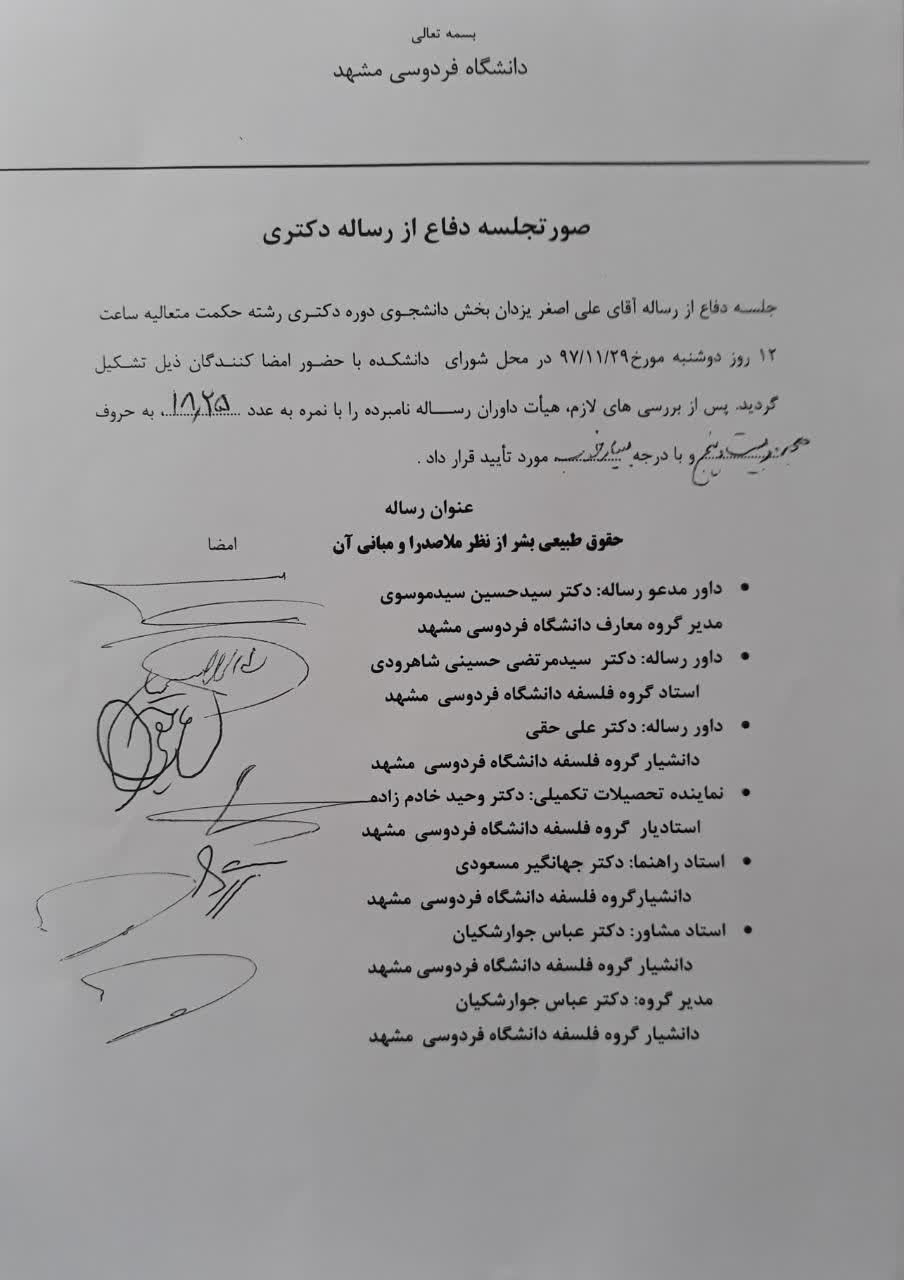 بسمه تعالی
دانشگاه فردوسی مشهد
صورتجلسه دفاع از رساله دکتری
جلسه دفاع از رساله آقای علی اصغر یزدان بخش دانشجوی دوره دکتری رشته حکمت متعالیه ساعت
۱۲ روز دوشنبه مورخ ۹۷/۱۱/۲۹ در محل شورای دانشکده با حضور امضا کنندگان ذیل تشکیل
گردید. پس از بررسی های لازم، هیأت داوران رساله نامبرده را با نمره به عدد ۱۸٫۲۵، به حروف
هجده و بیست و پنج و با درجه بسیار خوب مورد تأیید قرار داد .
عنوان رساله
حقوق طبیعی بشر از نظر ملاصدرا و مبانی آن
امضا
• داور مدعو رساله: دکتر سیدحسین سیدموسوی
مدیر گروه معارف دانشگاه فردوسی مشهد
• داور رساله: دکتر سیدمرتضی حسینی شاهرودی
استاد گروه فلسفه دانشگاه فردوسی مشهد
• داور رساله: دکتر علی حقی
دانشیار گروه فلسفه دانشگاه فردوسی مشهد
• نماینده تحصیلات تکمیلی: دکتر وحید خادم زاده
استادیار گروه فلسفه دانشگاه فردوسی مشهد
• استاد راهنما: دکتر جهانگیر مسعودی
دانشیارگروه فلسفه دانشگاه فردوسی مشهد
• استاد مشاور: دکتر عباس جوارشکیان
دانشیار گروه فلسفه دانشگاه فردوسی مشهد
مدیر گروه: دکتر عباس جوارشکیان
دانشیار گروه فلسفه دانشگاه فردوسی مشهد